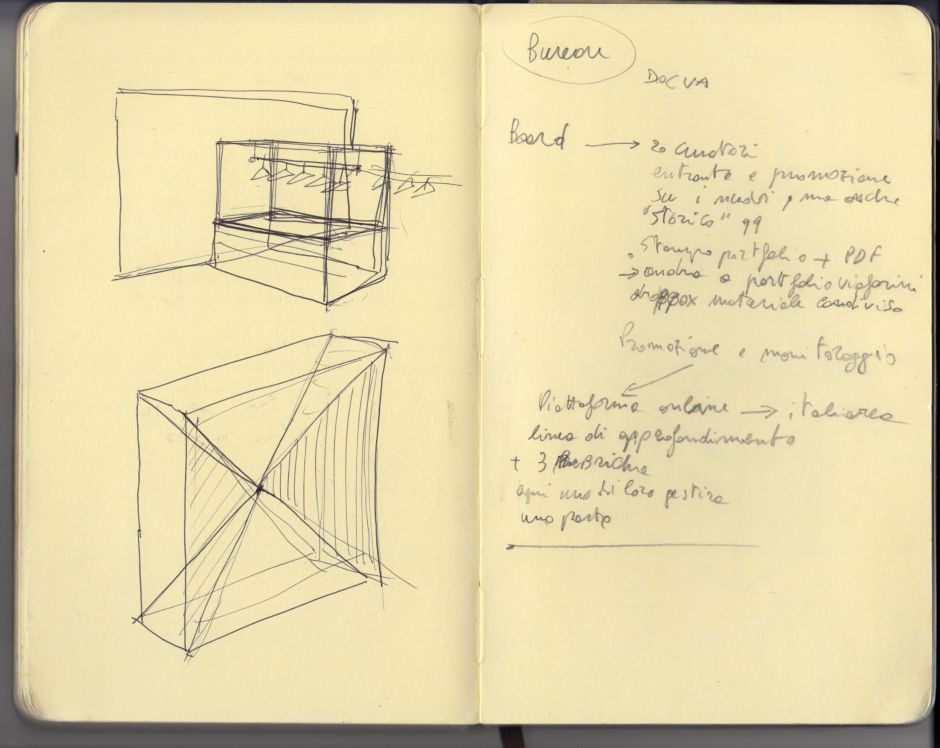 Bureau
DOCVA
Board → 20 curatori
entrante e promozione
su i nuovi, ma anche
"storico" gg
. Stampa portfolio + PDF
→ andra a portfolio viafarini
dropbox materiale condiviso
Promozione e monitoraggio
Piattaforma online → italiarea
linea di approfondimento
+ 3 RuBriche
ogni uno di loro gestira
una parte